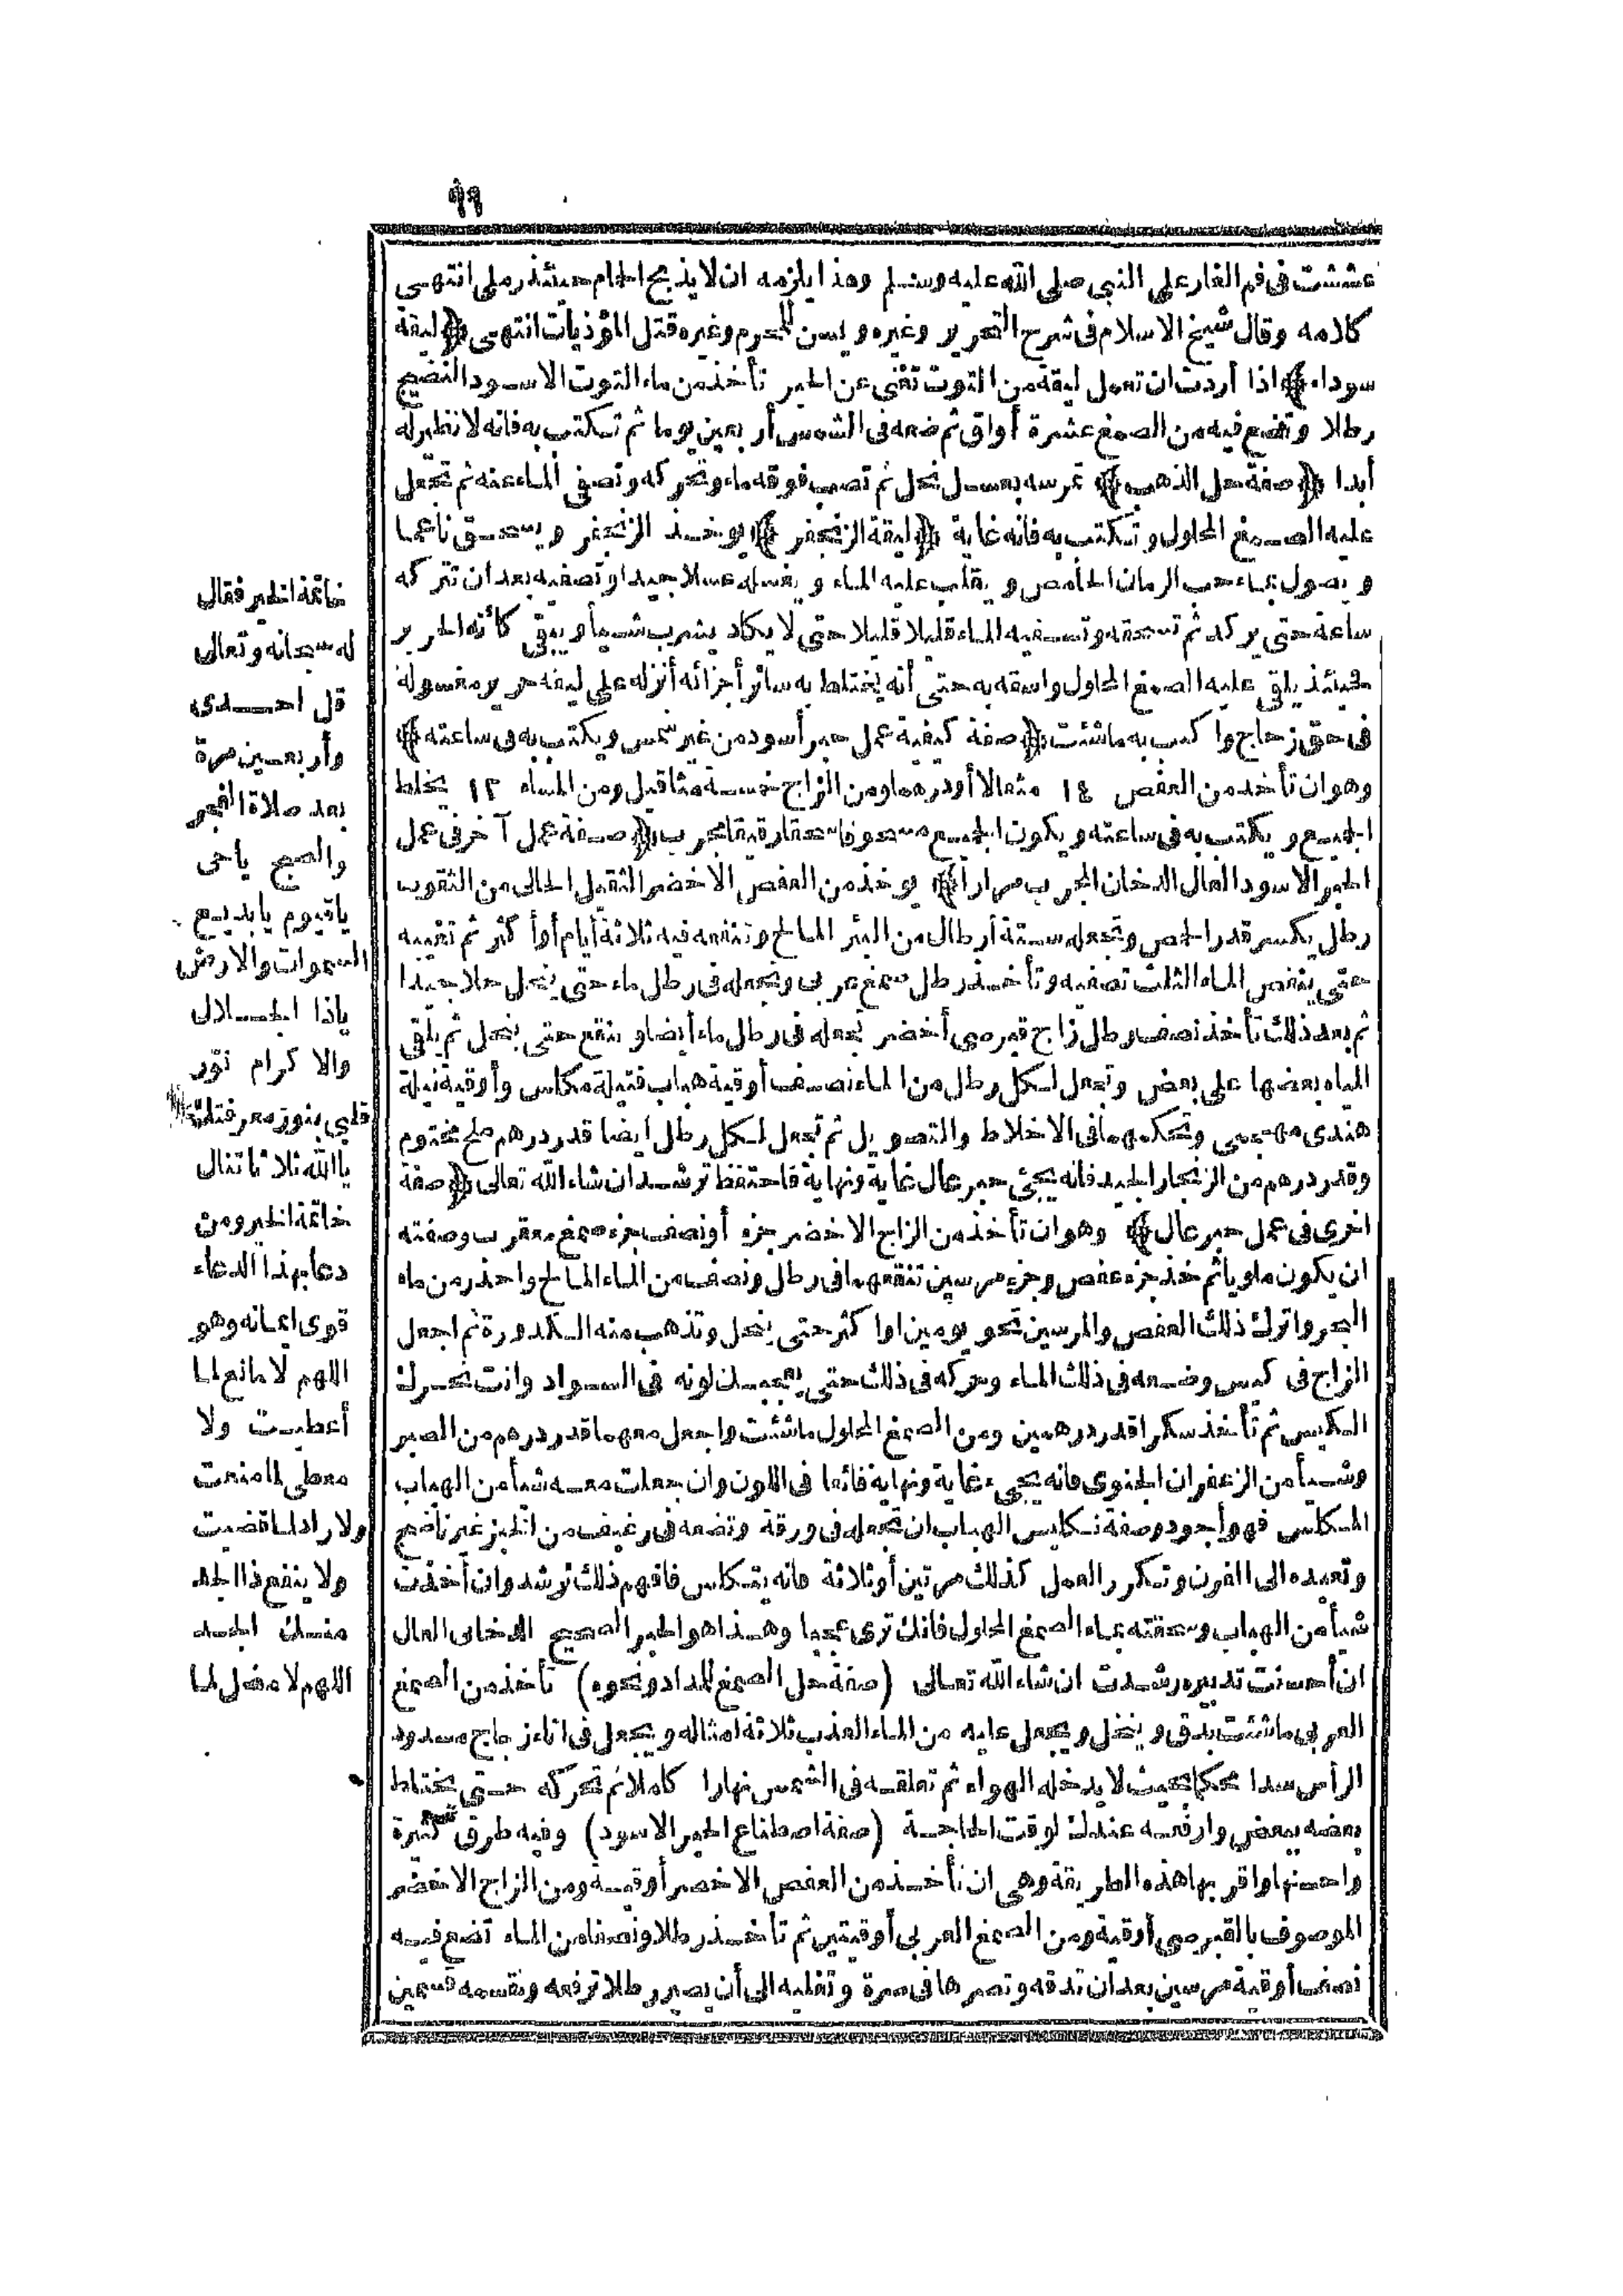 ٩٩
عششت فى فم الغار على النبى صلى الله عليه وسلم وهذا يلزمه ان لا يذبح الحمام حينئذ رملى انتهى
كلامه وقال شيخ الاسلام فى شرح التحرير وغيره ويسن للمحرم وغيره قتل المؤذيات انتهى ﴿ليقة
سوداء﴾ اذا أردت ان تعمل ليقة من التوت تغنى عن الحبر تأخذ من ماء التوت الاسود النضيج
رطلا وتضع فيه من الصمغ عشرة أواق ثم ضعه فى الشمس أربعين يوما ثم تكتب به فانه لا نظير له
أبدا ﴿صفة حل الذهب﴾ تمرسه بعسل نحل ثم تصب فوقه ماء وتحركه وتصفى الماء عنه ثم تجعل
عليه الصمغ المحلول وتكتب به فانه غاية ﴿ليقة الزنجفر﴾ يوخذ الزنجفر ويسحق ناعما
ويصول بماء حب الرمان الحامض ويقلب عليه الماء ويغسله غسلا جيدا وتصفيه بعد ان تتركه
ساعة حتى يركد ثم تسحقه وتسقيه الماء قليلا قليلا حتى لا يكاد يشرب شيأ ويبقى كأنه الحرير
فحينئذ يلقى عليه الصمغ المحلول واسقه به حتى أنه يختلط به سائر أجزائه أنزله على ليقة حرير مغسولة
فى حق زجاج واكتب به ماشئت ﴿صفة كيفية عمل حبر أسود من غير شمس ويكتب به فى ساعته﴾
وهو ان تأخذ من العفص ١٤ مثقالا أو درهما ومن الزاج خمسة مثاقيل ومن الماء ١٢ يخلط
الجميع ويكتب به فى ساعته ويكون الجميع مسحوقا سحقا رقيقا مجرب ﴿صفة عمل آخر فى عمل
الحبر الاسود العال الدخان المجرب مرارا﴾ يوخذ من العفص الاخضر الثقيل الخالى من الثقوب
رطل يكسر قدر الحمص وتجعله ستة أرطال من البئر المالح وتنقعه فيه ثلاثة أيام أو أكثر ثم تغليه
حتى ينقص الماء الثلث تصفيه وتأخذ رطل صمغ عربى وتجعله فى رطل ماء حتى ينحل حلا جيدا
ثم بعد ذلك تأخذ نصف رطل زاج قبرصى أخضر تجعله فى رطل ماء أيضا وينقع حتى ينحل ثم يلقى
المياه بعضها على بعض وتجعل لكل رطل من الماء نصف أوقية هباب فتيلة مكلس وأوقية نيلة
هندى وتحكمهما فى الاخلاط والتصويل ثم تجعل لكل رطل ايضا قدر درهم ملح مختوم
وقدر درهم من الزنجار الجيد فانه يجئ حبر عال غاية ونهاية فاحتفظ ترشد ان شاء الله تعالى ﴿صفة
اخرى فى عمل حبر عال﴾ وهو ان تأخذ من الزاج الاخضر جزء أو نصف جزء صمغ معقرب وصفته
ان يكون ملويا ثم خذ جزء عفص وجزء مرسين تنقعهما فى رطل ونصف من الماء المالح واحذر من ماء
البحر واترك ذلك العفص والمرسين نحو يومين اوا كثر حتى ينحل وتذهب منه الكدورة ثم اجعل
الزاج فى كيس وضعه فى ذلك الماء وحركه فى ذلك حتى يعجبك لونه فى السواد وانت تحرك
الكيس ثم تأخذ سكرا قدر درهمين ومن الصمغ المحلول ماشئت واجعل معهما قدر درهم من الصبر
وشيأ من الزعفران الجنوى فانه يجىء غاية ونهاية فائقا فى اللون وان جعلت معه شيأ من الهباب
المكلس فهو أجود وصفة تكليس الهباب ان تجعله فى ورقة وتضعه فى رغيف من الخبز غير ناضج
وتعيده الى الفرن وتكرر العمل كذلك مرتين أو ثلاثة فانه يتكلس فافهم ذلك ترشد وان أخذت
شيأ من الهباب وسحقته بماء الصمغ المحلول فانك ترى عجبا وهذا هو الحبر الصحيح الدخانى العال
ان أحسنت تدبيره رشدت ان شاء الله تعالى (صفة حل الصمغ للمداد ونحوه) تأخذ من الصمغ
العربى ماشئت يدق وينخل ويجعل عليه من الماء العذب ثلاثة امثاله ويجعل فى اناء زجاج مسدود
الرأس سدا محكما بحيث لا يدخله الهواء ثم تعلقه فى الشمس نهارا كاملا ثم تحركه حتى يختلط
بعضه ببعض وارفعه عندك لوقت الحاجة (صفة اصطناع الحبر الاسود) وفيه طرق كثيرة
واحسنها واقربها هذه الطريقة وهى ان تأخذ من العفص الاخضر أوقية ومن الزاج الاخضر
الموصوف بالقبرصى أوقية ومن الصمغ العربى أوقيتين ثم تأخذ رطلا ونصفا من الماء تضع فيه
نصف أوقية مرسين بعد ان تدقه وتصرها فى صرة وتغليه الى أن يصير رطلا ترفعه وتقسمه قسمين
خاتمة الخير فقال
له سبحانه وتعالى
قل احدى
وأربعين مرة
بعد صلاة الفجر
والصبح ياحى
ياقيوم يابديع
السموات والارض
ياذا الجلال
والاكرام نوّر
قلبى بنور معرفتك
يا الله ثلاثا تنال
خاتمة الخير ومن
دعا بهذا الدعاء
قوى ايمانه وهو
اللهم لا مانع لما
أعطيت ولا
معطى لما منعت
ولا راد لما قضيت
ولا ينفع ذا الجد
منك الجد
اللهم لا مضل لما